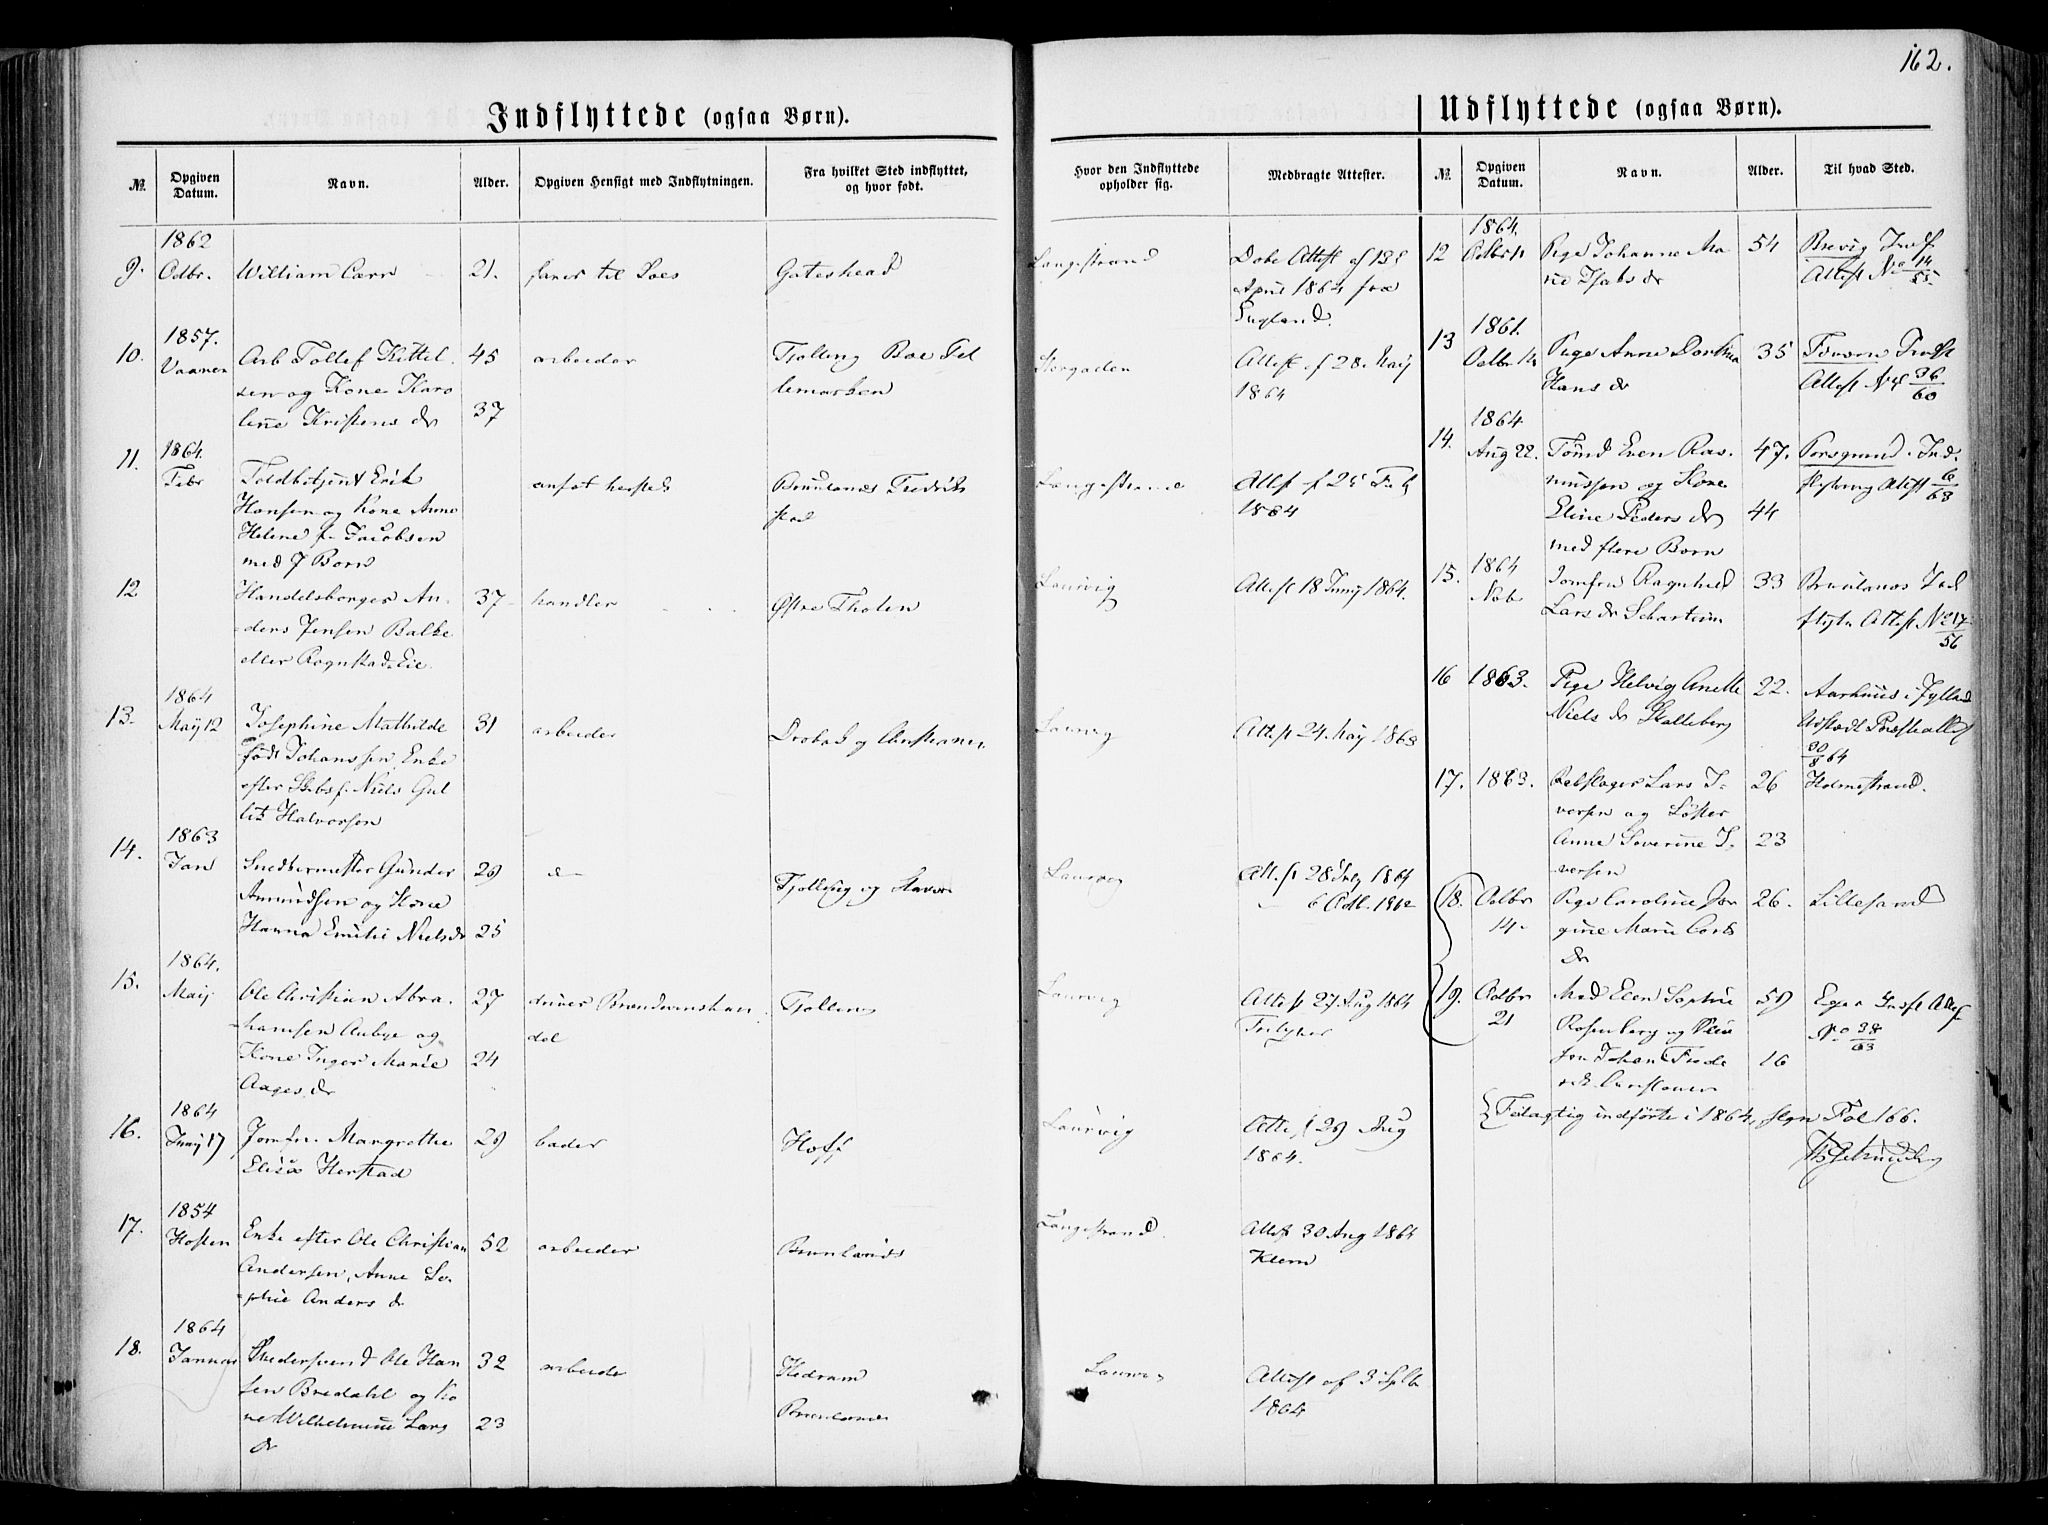 162.
Indflyttede (ogsaa Børn).
№
Opgiven Datum.
Navn.
Alder.
Opgiven Hensigt med Indflytningen.
Fra hvilket Sted indflyttet, og hvor født.
Hvor den Indflyttede opholder sig.
Medbragte Attester.
9.
1862
Octbr.
William Carr
21.
farer til Søes
Gateshead
Langestrand
Dobe Attest af
April 1864 fra
England.
10.
1857.
Vaaren
Arb Tollef Kittel
sen og Kone Karo
line Kristens dr
45
37
arbeider
Tjølling Boe Tel
lemarken
Storgaden
Attest af 28 Maij
1864
11.
1864.
Febr
Toldbetjent Erik
Hansen og Kone Anne
Helene f. Jacobsen
med 7 Børn
ansat hersteds
Brunlanæs Fredriks
stad
Langestrand
Attest f 25 Feb
1864
12
Handelsborger An-
ders Jensen Balke
eller Rognstad Eie.
37
handler
Østre Thoten
Laurvig
Attest 18 Junij 1864.
13.
1864
Maij 12
Josephine Mathilde
født Johanssen Enke
efter Skibsf. Niels Gul
lik Halvorsen
31
arbeider
Drøbak og Christiania
Laurvig
Attest 24 Maij 1863
14.
1863
Jan
Snedkermester Gunder
Amundsen og Kone
Hanna Emilie Nielsdr
29
25
d-
Tjølling og Stavern
Laurvig
Attest 28 July 1864
6 Octb. 1862
15.
1864.
Maij
Ole Christian Abra-
hamsen Aubye og
Kone Inger Marie
Aages dr
27
24
driver Brændevinshan
del
Tjølling
Laurvig
Attest 27 Aug 1864
16.
1864
Junij 17
Jomfru Margrethe
Elisa Herstad
29
bader
Hoff
Laurvig
Attest 29 Aug
1864.
17.
1854
Høsten
Enke efter Ole Christian
Andersen, Anne So-
phie Anders dr
52
arbeider
Brunlanæs
Langestrand.
Attest 30 Aug 1864
18.
1864
Januar
Ole Han
sen Bredahl og Ko
ne Wilhelmine Lars
dr
32
23
arbeide
Hedrum
Brunlanæs
Laurvig
Attest af 3 Septb
1864
Udflyttede (ogsaa Børn).
№
Opgiven Datum.
Navn.
Alder.
Til hvad Sted.
12
1864.
Octbr 11
Pige Johanne Ma
rie Isaks dr
54
Brevig Indf
Attest No 14/55
13
1861.
Octbr
Pige Anne Dorthea
Hans dr
35
Indfl
Attest No 36/60
14.
1864
Aug 22.
Tømd Even Ras-
mussen og Kone
Eline Peders dr
med flere Børn
47.
44
Porsgrund. Ind-
flytning Attest 6/63
15.
1864
Nob
Jomfru Ragnhild
Lars dr
33
Brunlanæs Ind
flytn Attest No 17/56
16
1863.
Pige Helvig Anette
Niels dr Skalleberg
22.
Aarhuus i Jylland
Udstædt
30/8 64
17.
1863.
Rebslager Lars I-
versen og Søster
Anne Severine I-
versen
26
23
Holmestrand.
18.
Octbr
14-
Pige Caroline Jør
gine Marie Carls
dr
26.
Lillesand
19.
Octbr
21
Mad Elen Sophie
Rosenberg og
søn Johan Frede
rik
59
16
Indfl Attest
No 38/63
Feilagtig indførte i 1864, Fol 166.